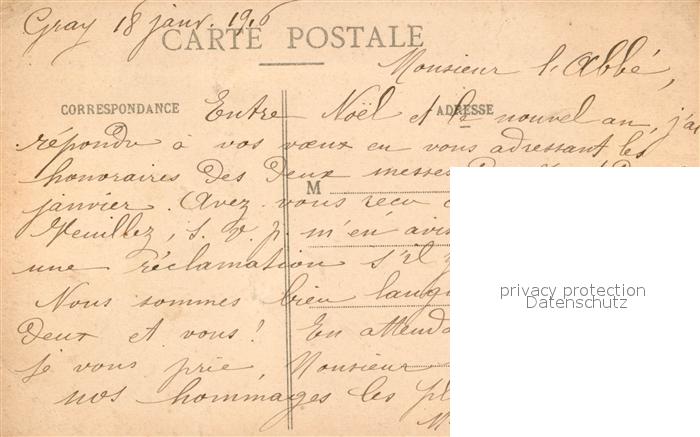 Gray 18 janv. 1916
CARTE POSTALE
Monsieur l'Abbé,
CORRESPONDANCE
ADRESSE
Entre Noël et le nouvel an, j'ai
répondu à vos vœux en vous adressant les
honoraires des deux messes
M
janvier. Avez-vous reçu
Veuillez, s. v. p. m'en avis
une réclamation s'il
Nous sommes bien langui
deux et vous! En attenda
je vous prie, Monsieur
nos hommages les pl
privacy protection
Datenschutz